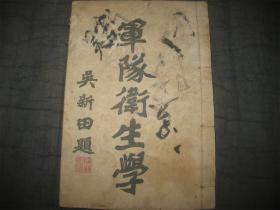 軍隊衛生學
吳新田題